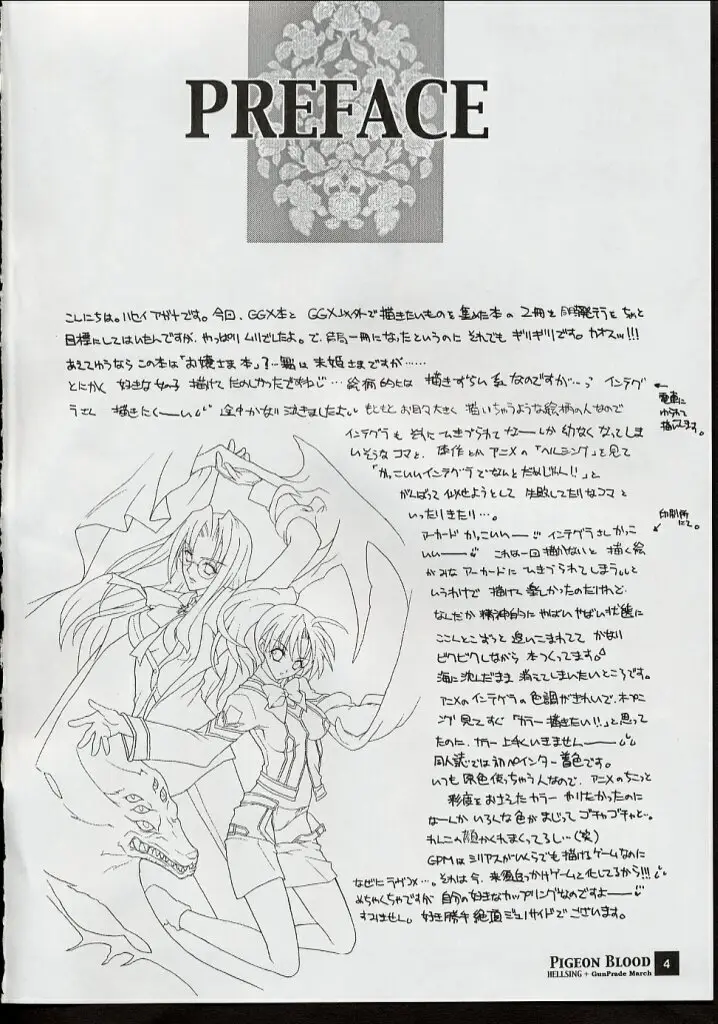 PREFACE
こんにちは。ハセイアガナです。今回、GGX本と GGX以外で描きたいものを集めた本の 2冊を
目標にしてはいたんですが、やっぱりムリでしたよ。で、結局一冊になったというのに それでも ギリギリです。カオスッ!!!
あえてゆうなら この本は「お嬢さま本」?…
とにかく 好きな女の子 描けて たのしかったですねぇ… 描きずらい系なのですが…っ インテグ
ラさん 描きたくーい 途中かなり泣きましたよ。もともと お目々大きく 描いちゃうような絵柄の人なので
電車に
ゆられて
描いてます。
インテグラも それに ひきづられて なーんか 幼くなってしま
いそうなコマと、原作とかアニメの「ヘルシング」を見て
「かっこいいインテグラでなんとだめじゃん!!」と
がんばって 似せようとして 失敗してたりなコマと
いったりきたり…。
印刷所
にて。
アーカード かっこいいー インテグラさん かっこ
いいー これは一回描かないと 描く絵
がみな アーカードに ひきづられてしまうと
いうわけで 描けて 楽しかったのだけれど、
なんだか 精神的に やばいやばい状態に
とことん 追いこまれてて かなり
ビクビクしながら 本つくってます。
海に沈んだまま 消えてしまいたいところです。
アニメの インテグラの 色調がきれいで、オープニ
ング見て すぐ 「カラー描きたい!!」と思って
たのに、カラー 上手くいきませんー
同人誌では初ペインター着色です。
いつも 原色使っちゃう人なので、アニメのちょっと
彩度を おさえたカラー やりたかったのに
なーんか いろんな色が まじって ゴチャゴチャと…。
わんこの顔かくれまくってるし…(笑)
GPMは シリアスがいくらでも描けるゲームなのに
なぜにラヴコメ…。それは今、
めちゃくちゃですが 自分の好きなカップリングなのですよー
すいません。好き勝手 絶頂 ジェノサイドでございます。
PIGEON BLOOD
HELLSING + GunPrade March
4